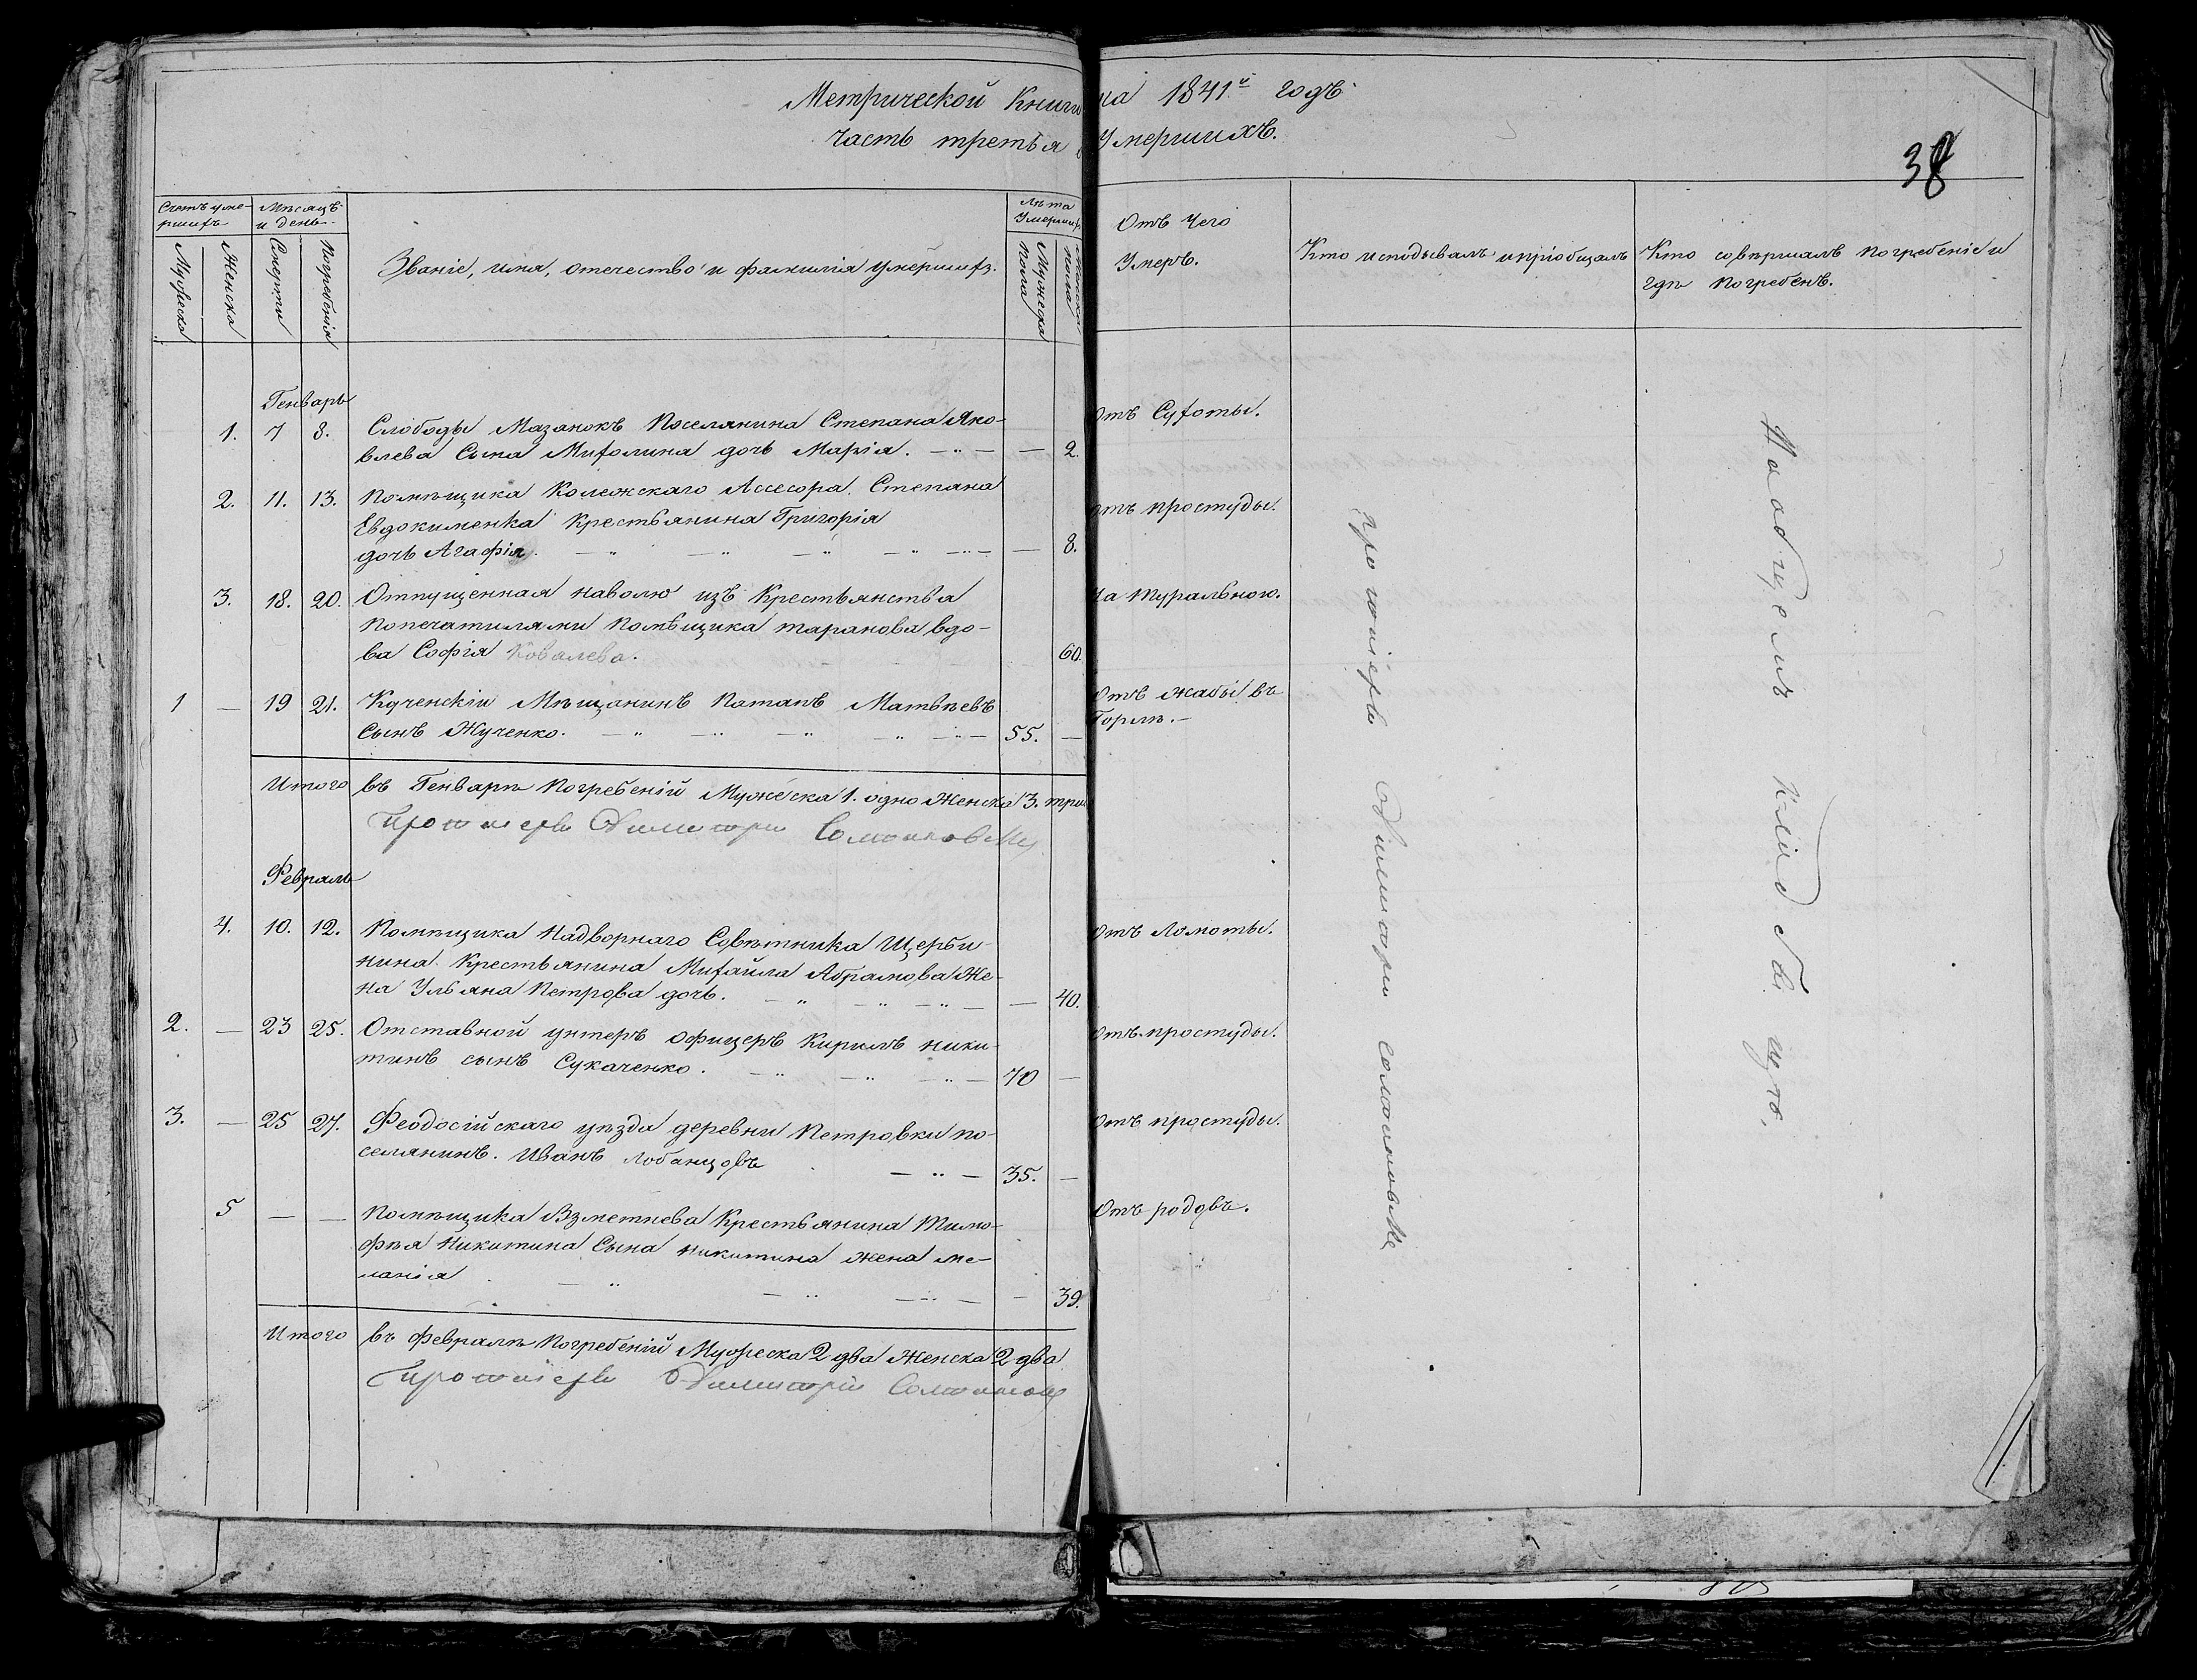 Метрической Книги на 1841й годъ
часть третья Умершихъ.
38
Счетъ уме-
ршихъ
Мѣсяцъ
и день
Званіе, имя, отечество и фамилія умершихъ.
Лѣта
Умершихъ
Отъ Чего
Умеръ.
Кто исподывалъ и пріобщалъ
Кто совершалъ погребеніе и
гдѣ погребенъ.
Мужеска
Женска
Смерти
Погребенія
Мужеска
пола
Женска
пола
Генварь
1. 7 8. Слободы Мазанокъ Поселянина Степана Яко-
влева Сына Михолина дочь Марія. — 2. Отъ Сухоты.
2. 11. 13. Помѣщика Колежскаго Ассесора Степана
Евдокименка Крестьянина Григорія
дочь Агафія. — 8. отъ простуды.
3. 18. 20. Отпущенная наволю изъ Крестьянства
попечатилями Помѣщика таранова вдо-
ва Софія Ковалева. 60. На туральною.
1 — 19 21. Кученскій Мѣщанинъ Потапъ Матвѣевъ
Сынъ Жученко. 55. — Отъ жабы въ
Горлѣ.
Итого въ Генварѣ погребеній Мужеска 1. одно Женска 3. три
Протоіерей Димитрій
Февраль
4. 10. 12. Помѣщика Надворнаго Совѣтника Щерби-
нина Крестьянина Михайла Абрамова Же-
на Ульяна Петрова дочь. — 40. Отъ Ломоты.
2. — 23 25. Отставной унтеръ офицеръ Кирилъ ники-
тинъ сынъ Сукаченко. 70 — Отъ простуды.
3. — 25 27. Феодосійскаго уѣзда деревни Петровки по-
селянинъ Иванъ Лобанцовъ 35. — Отъ простуды.
5 — — Помѣщика Взметнева Крестьянина Тимо-
фѣя Никитина Сына никитина жена ме-
ланія — 39. Отъ родовъ.
Итого въ Февралѣ погребеній Мужеска 2 два Женска 2 два
Протоіерей Димитрій
Протоіерей Димитрій
На общемъ кладбищѣ